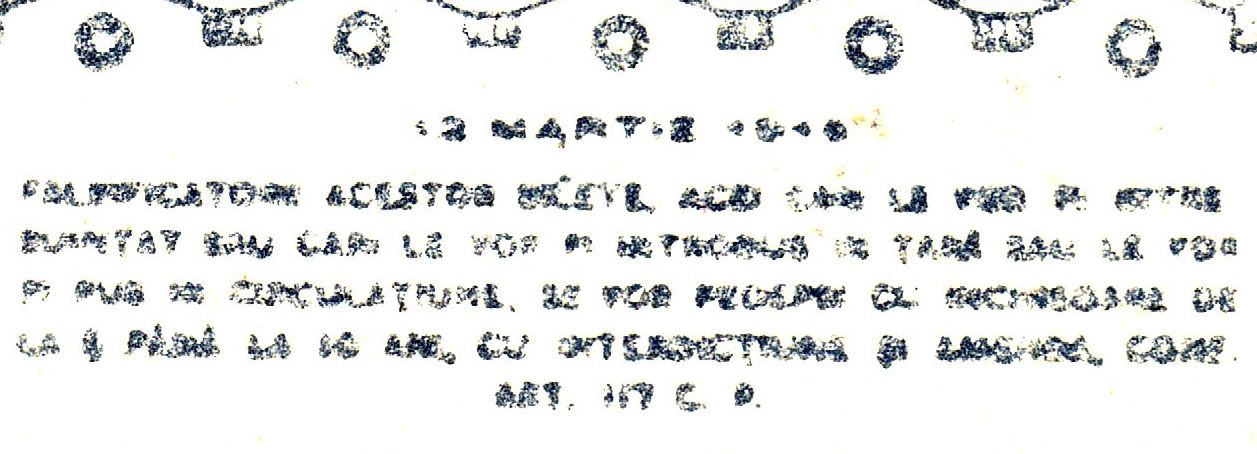 MARTIE
FALSIFICATORII ACESTOR BILETE, ACEI CARI LE VOR FI INTRE
BUINTAT SAU CARI LE VOR FI INTRODUS IN ȚARĂ SAU LE VOR
FI PUS IN CIRCULAȚIUNE, SE VOR PEDEPSI CU INCHISOARE DE
LA PÂNĂ LA 10 ANI, CU INTERDICȚIUNE ȘI AMENDA, CONF.
ART. 117 C. P.